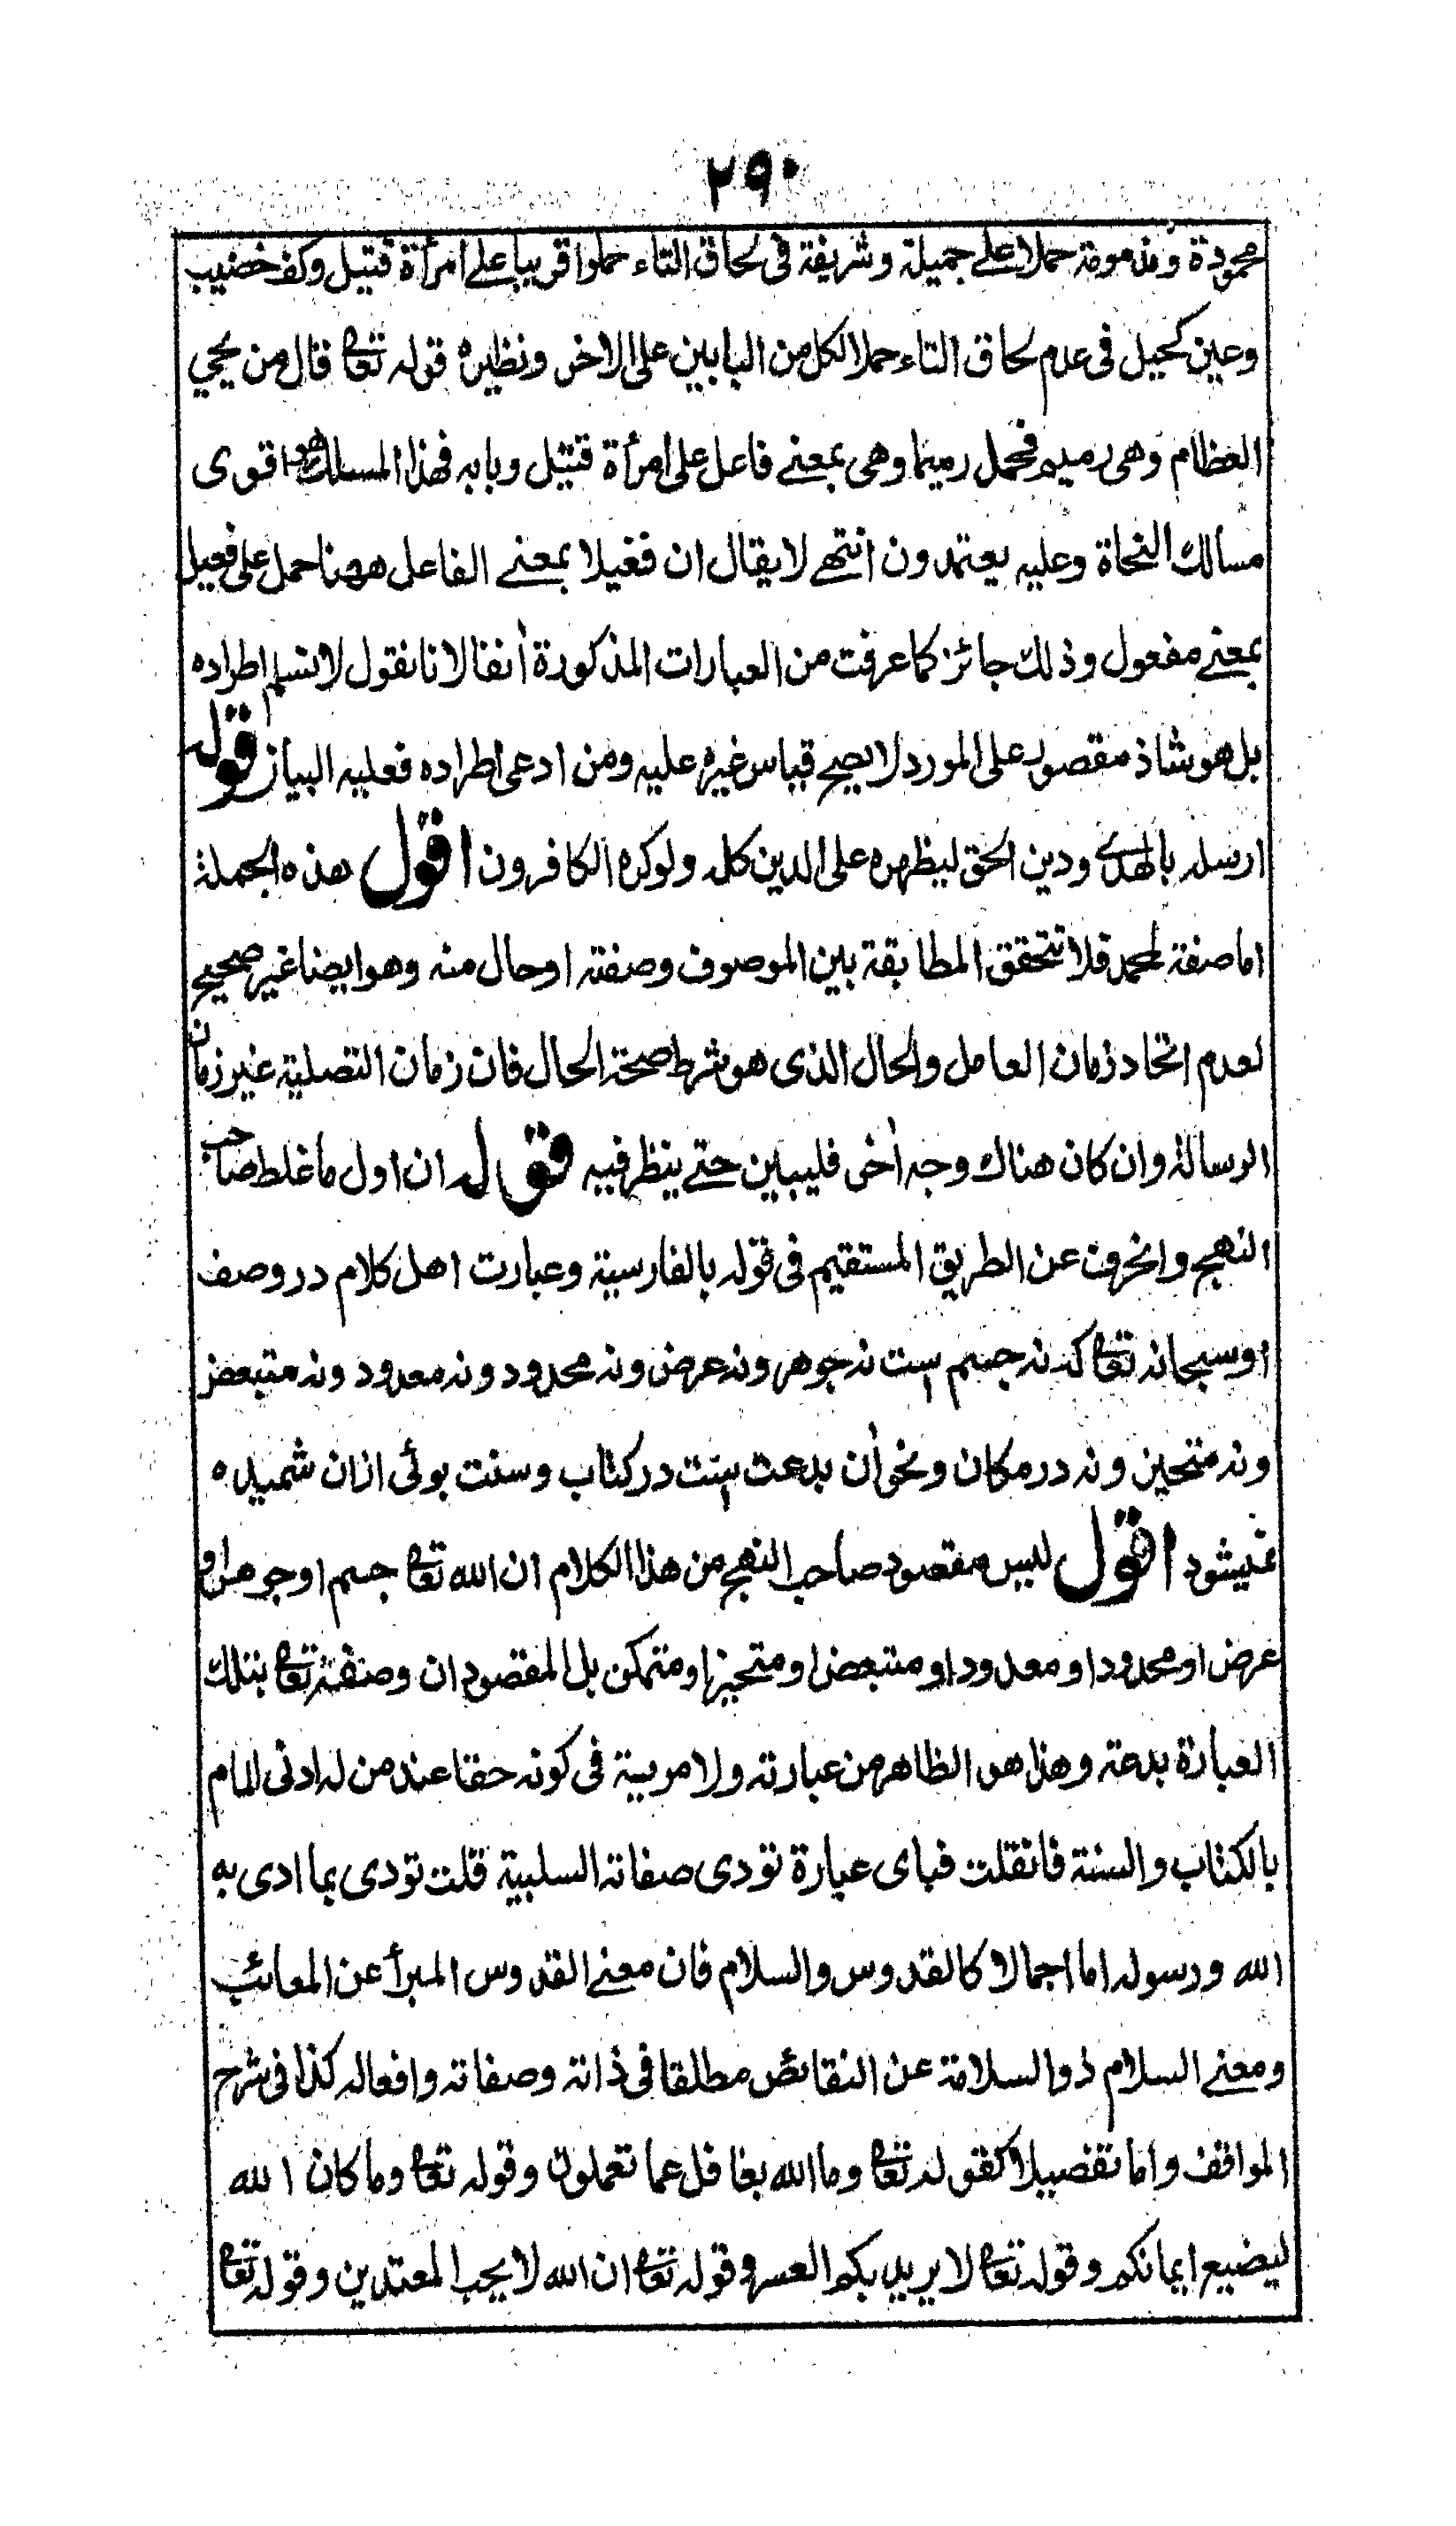 ٢٩٠
محمودة ومذمومة حملا على جميلة وشريفة فى لحاق التاء حملوا قريبا على امرأة قتيل وكف خضيب
وعين كحيل فى عدم لحاق التاء حملا لكل من البابين على الاخر ونظيره قوله تعالى قال من يحيي
العظام وهى رميم فحمل رميما وهى بمعنے فاعل على امرأة قتيل وبابه فهذا المسلك هو اقوى
مسالك النحاة وعليه يعتمدون انتهے لا يقال ان فعيلا بمعنے الفاعل ههنا حمل على فعيل
بمعنے مفعول وذلك جائز كما عرفت من العبارات المذكورة أنفا لانا نقول لا نسلم اطراده
بل هو شاذ مقصور على المورد لا يصح قياس غيره عليه ومن ادعى اطراده فعليه البيان قوله
ارسله بالهدے ودين الحق ليظهره على الدين كله ولوكره الكافرون اقول هذه الجملة
اما صفة لمحمد فلا تتحقق المطابقة بين الموصوف وصفته اوحال منه وهو ايضا غير صحيح
لعدم اتحاد زمان العامل والحال الذى هو شرط صحة الحال فان زمان التصلية غير زمان
الرسالة وان كان هناك وجه أخر فليبين حتے ينظر فيه قوله ان اول ما غلط صاحب
النهج وانحرف عن الطريق المستقيم فى قوله بالفارسية وعبارت اهل كلام در وصف
او سبحانه تعالى كه نه جسم ست نه جوهر ونه عرض ونه محدود ونه معدود ونه متبعض
ونه متحيز ونه در مكان ونحو أن بدعت ست در كتاب وسنت بوئى ازان شميده
نميشود اقول ليس مقصود صاحب النهج من هذا الكلام ان الله تعالى جسم اوجوهر او
عرض او محدود او معدود او متبعض او متحيز او متمكن بل المقصود ان وصفه تعالى بتلك
العبارة بدعة وهذا هو الظاهر من عبارته ولا مرية فى كونه حقا عند من له ادنى المام
بالكتاب والسنة فان قلت فباى عبارة تودى صفاته السلبية قلت تودى بما ادى به
الله ورسوله اما اجمالا كالقدوس والسلام فان معنے القدوس المبرأ عن المعائب
ومعنے السلام ذوالسلامة عن النقائص مطلقا فى ذاته وصفاته وافعاله كذا فى شرح
المواقف واما تفصيلا كقوله تعالى وما الله بغافل عما تعملون وقوله تعالى وما كان الله
ليضيع ايمانكم وقوله تعالى لا يريد بكم العسر وقوله تعالى ان الله لا يحب المعتدين وقوله تعالى